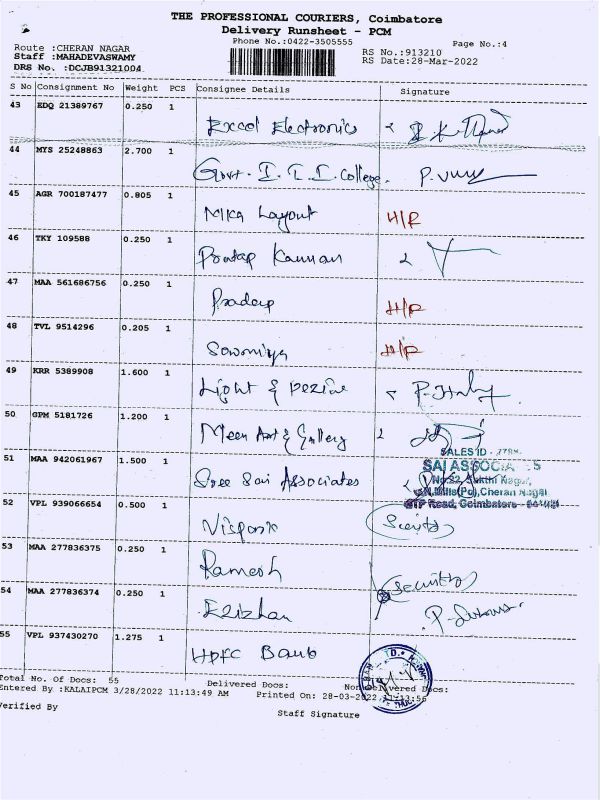 THE PROFESSIONAL COURIERS, Coimbatore
Delivery Runsheet - PCM
Phone No.:0422-3505555
Page No.:4
Route :CHERAN NAGAR
Staff :MAHADEVASWAMY
DRS No. :DCJB91321004
RS No.:913210
RS Date:28-Mar-2022
S No Consignment No Weight PCS Consignee Details Signature
43 EDQ 21389767 0.250 1
Excel Electronics
44 MYS 25248863 2.700 1
Govt. I.T.I. College.
45 AGR 700187477 0.805 1
Mika Layout H/R
46 TKY 109588 0.250 1
Pratap Kannan
47 MAA 561686756 0.250 1
Pradeep H/R
48 TVL 9514296 0.205 1
Sowmiya H/R
49 KRR 5389908 1.600 1
Light & Dezine
50 GPM 5181726 1.200 1
Meen Art & Gallery
51 MAA 942061967 1.500 1
Sree Sai Associates
SALES ID
SAI ASSOCIATES
No:32, Sakthi Nagar,
Mills(Po),Cheran Nagar
MTP Road, Coimbatore
52 VPL 939066654 0.500 1
53 MAA 277836375 0.250 1
Ramesh Security
54 MAA 277836374 0.250 1
55 VPL 937430270 1.275 1
HDFC Bank
Total No. Of Docs: 55 Delivered Docs: Non Delivered Docs:
Entered By :KALAIPCM 3/28/2022 11:13:49 AM Printed On: 28-03-2022 11:13:56
Verified By
Staff Signature